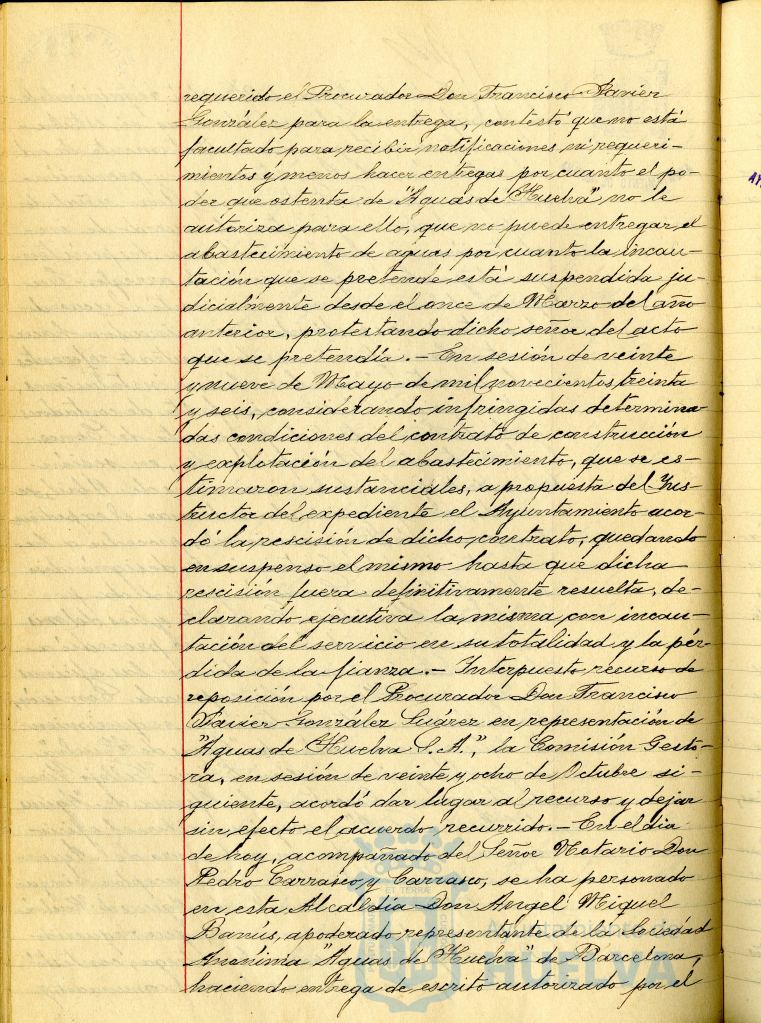 requerido el Procurador Don Francisco Xavier
González para la entrega, contestó que no está
facultado para recibir notificaciones ni requeri-
mientos y menos hacer entregas por cuanto el po-
der que ostenta de "Aguas de Huelva" no le
autoriza para ello, que no puede entregar el
abastecimiento de aguas por cuanto la incau-
tación que se pretende está suspendida ju-
dicialmente desde el once de Marzo del año
anterior, protestando dicho señor del acto
que se pretendía.- En sesión de veinte
y nueve de Mayo de mil novecientos treinta
y seis, considerando infringidas determina-
das condiciones del contrato de construcción
y explotación del abastecimiento, que se es-
timaron sustanciales, a propuesta del Ins-
tructor del expediente el Ayuntamiento acor-
dó la rescisión de dicho contrato, quedando
en suspenso el mismo hasta que dicha
rescisión fuera definitivamente resuelta, de-
clarando ejecutiva la misma con incau-
tación del servicio en su totalidad y la pér-
dida de la fianza.- Interpuesto recurso de
reposición por el Procurador Don Francisco
Xavier González Suárez en representación de
"Aguas de Huelva S.A.", la Comisión Gesto-
ra, en sesión de veinte y ocho de Octubre si-
guiente, acordó dar lugar al recurso y dejar
sin efecto el acuerdo recurrido.- En el dia
de hoy, acompañado del Señor Notario Don
Pedro Carrasco y Carrasco, se ha personado
en esta Alcaldia Don Angel Miquel
Banús, apoderado, representante de la Sociedad
Anonima "Aguas de Huelva" de Barcelona,
haciendo entrega de escrito autorizado por el
HUELVA